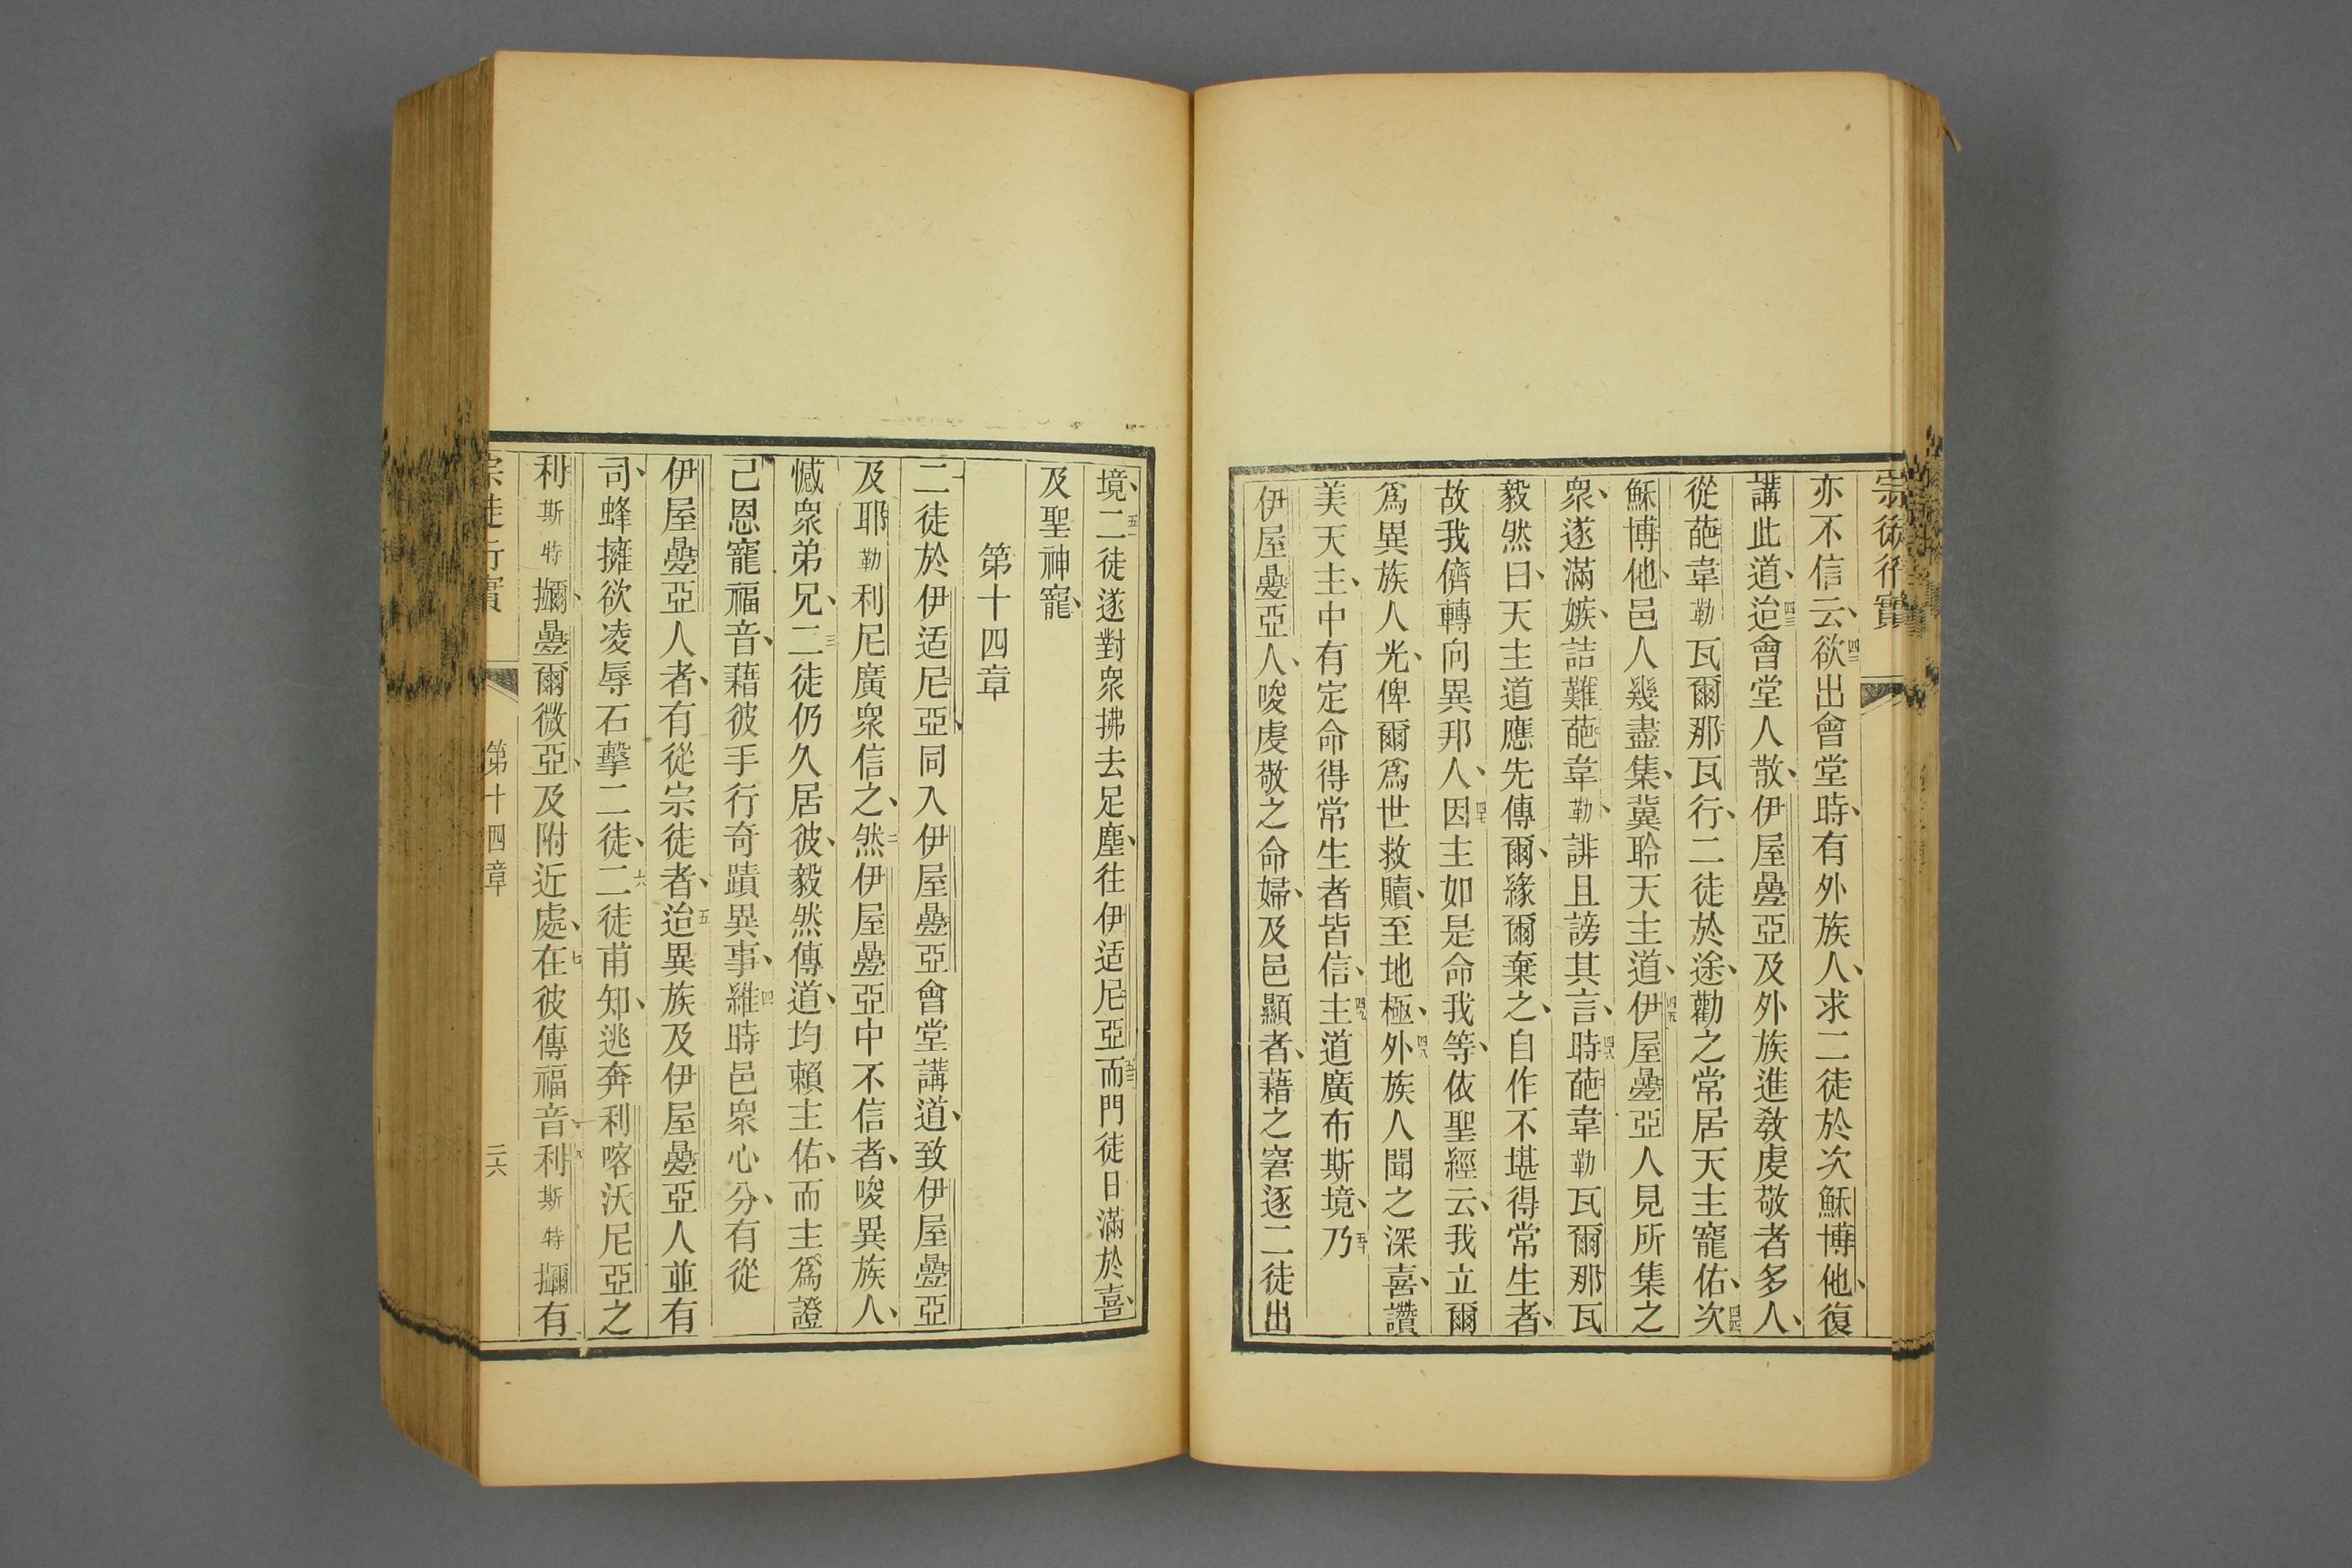 宗徒行實
亦不信云、四二欲出會堂時、有外族人、求二徒於次穌博他、復
講此道、四三迨會堂人散、伊屋疊亞及外族進敎虔敬者多人、
從葩韋勒瓦爾那瓦行、二徒於途、勸之常居天主寵佑、四四次
穌博他、邑人幾盡集、冀聆天主道、四五伊屋疊亞人見所集之
衆、遂滿嫉、詰難葩韋勒、誹且謗其言、四六時葩韋勒瓦爾那瓦
毅然曰、天主道應先傳爾、緣爾棄之、自作不堪得常生者、
故我儕轉向異邦人、四七因主如是命我等、依聖經云、我立爾
爲異族人光、俾爾爲世救贖、至地極、四八外族人聞之深喜、讚
美天主、中有定命得常生者皆信、四九主道廣布斯境、五十乃
伊屋疊亞人、唆虔敬之命婦、及邑顯者、藉之窘逐二徒出
境、五一二徒遂對衆拂去足塵、往伊适尼亞、五二而門徒日滿於喜、
及聖神寵、
第十四章
一二徒於伊适尼亞、同入伊屋疊亞會堂講道、致伊屋疊亞
及耶勒利尼廣衆信之、二然伊屋疊亞中不信者、唆異族人、
憾衆弟兄、三二徒仍久居彼、毅然傳道、均賴主佑、而主爲證
己恩寵福音、藉彼手行奇蹟異事、四維時邑衆心分、有從
伊屋疊亞人者、有從宗徒者、五迨異族及伊屋疊亞人並有
司、蜂擁欲凌辱石擊二徒、六二徒甫知、逃奔利喀沃尼亞之
利斯特攡、疊爾微亞、及附近處、七在彼傳福音、八利斯特攡有
宗徒行實
第十四章
二六